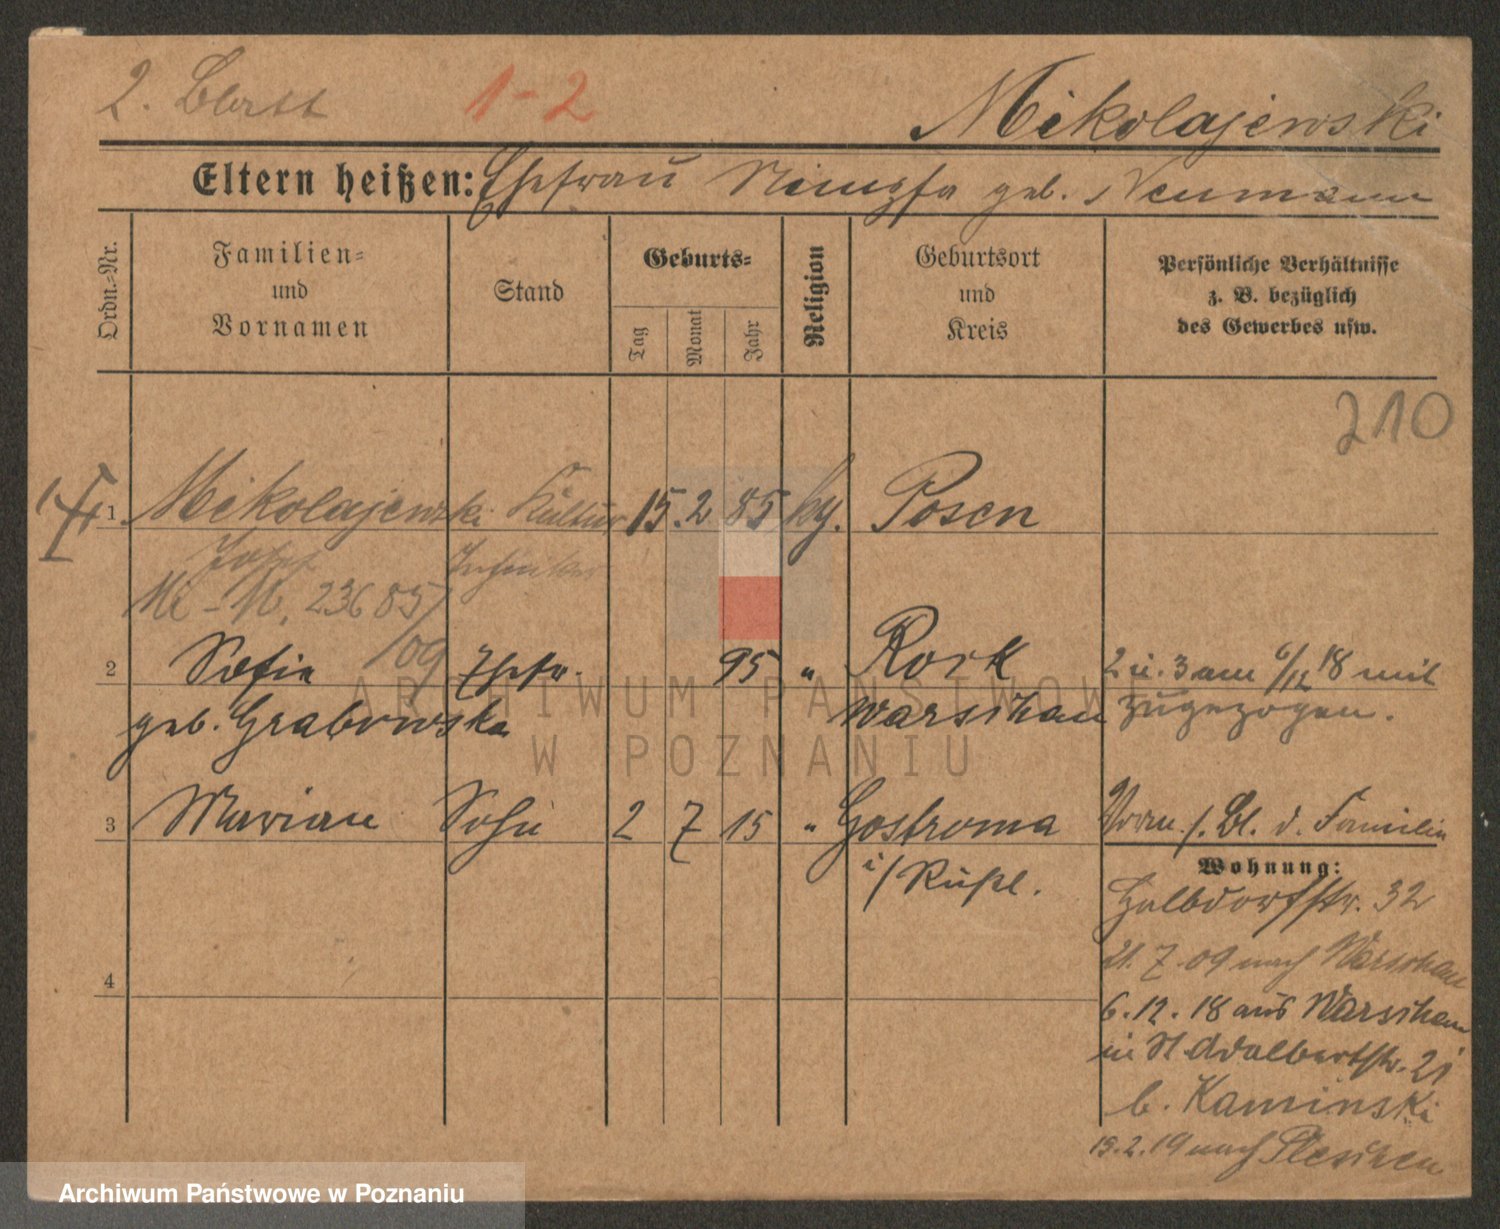 2. Blatt 1-2 Mikolajewski
Eltern heißen: Ehefrau geb. Neumann
Ordn.=Nr.
Familien=
und
Vornamen
Stand
Geburts=
Tag
Monat
Jahr
Religion
Geburtsort
und
Kreis
Persönliche Verhältnisse
z. B. bezüglich
des Gewerbes usw.
210
1 Mikolajewski Kultur 15. 2 85 kg. Posen
Josef Techniker
23685/
/09
2 Sofie Ehefr. 95 " Rork 2 u. 3 am 6/12 18 mit
geb. Grabowska Warschau zugezogen.
3 Marian Sohn 2 7 15 " Gostroma Bl. d. Familie
i/Rußl.
Wohnung:
Halbdorfstr. 32
21. 7. 09 nach Warschau
6. 12. 18 aus Warschau
in St. Adalbertstr. 21
b. Kaminski
15. 2. 19 nach Pleschen
4
ARCHIWUM PAŃSTWOWE
W POZNANIU
Archiwum Państwowe w Poznaniu